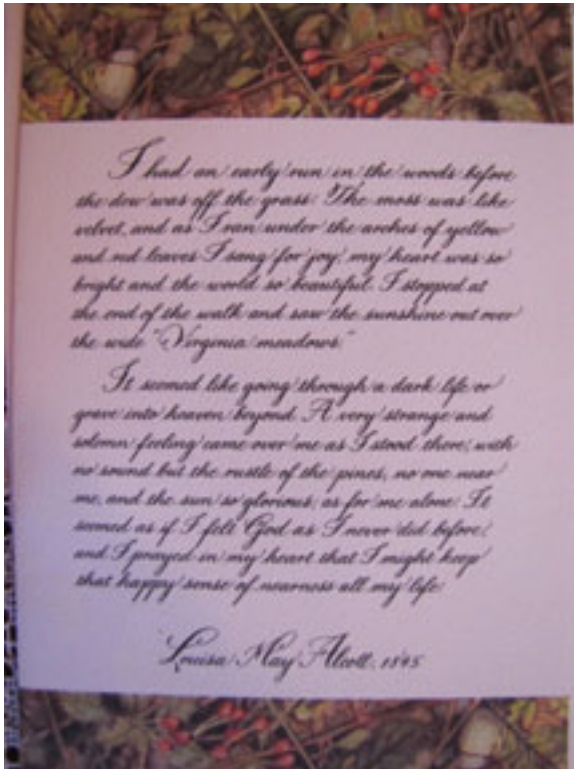 I had an early run in the woods before
the dew was off the grass. The moss was like
velvet, and as I ran under the arches of yellow
and red leaves I sang for joy, my heart was so
bright and the world so beautiful. I stopped at
the end of the walk and saw the sunshine out over
the wide "Virginia meadows."
It seemed like going through a dark life or
grave into heaven beyond. A very strange and
solemn feeling came over me as I stood there, with
no sound but the rustle of the pines, no one near
me, and the sun so glorious, as for me alone. It
seemed as if I felt God as I never did before,
and I prayed in my heart that I might keep
that happy sense of nearness all my life.
Louisa May Alcott, 1845